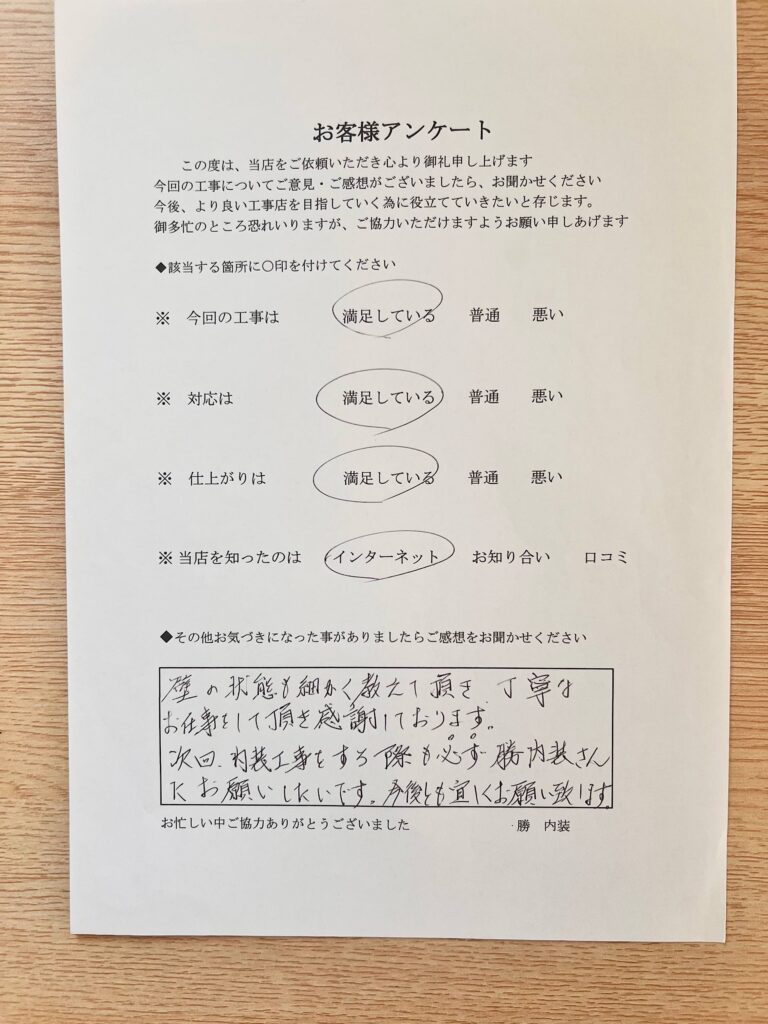 お客様アンケート
この度は、当店をご依頼いただき心より御礼申し上げます
今回の工事についてご意見・ご感想がございましたら、お聞かせください
今後、より良い工事店を目指していく為に役立てていきたいと存じます。
御多忙のところ恐れいりますが、ご協力いただけますようお願い申しあげます
◆該当する箇所に〇印を付けてください
※ 今回の工事は 満足している 普通 悪い
※ 対応は 満足している 普通 悪い
※ 仕上がりは 満足している 普通 悪い
※当店を知ったのは インターネット お知り合い 口コミ
◆その他お気づきになった事がありましたらご感想をお聞かせください
壁の状態も細かく教えて頂き、丁寧な
お仕事をして頂き感謝しております。
次回、内装工事をする際も必ず勝内装さん
にお願いしたいです。今後とも宜しくお願い致します
お忙しい中ご協力ありがとうございました 勝 内装